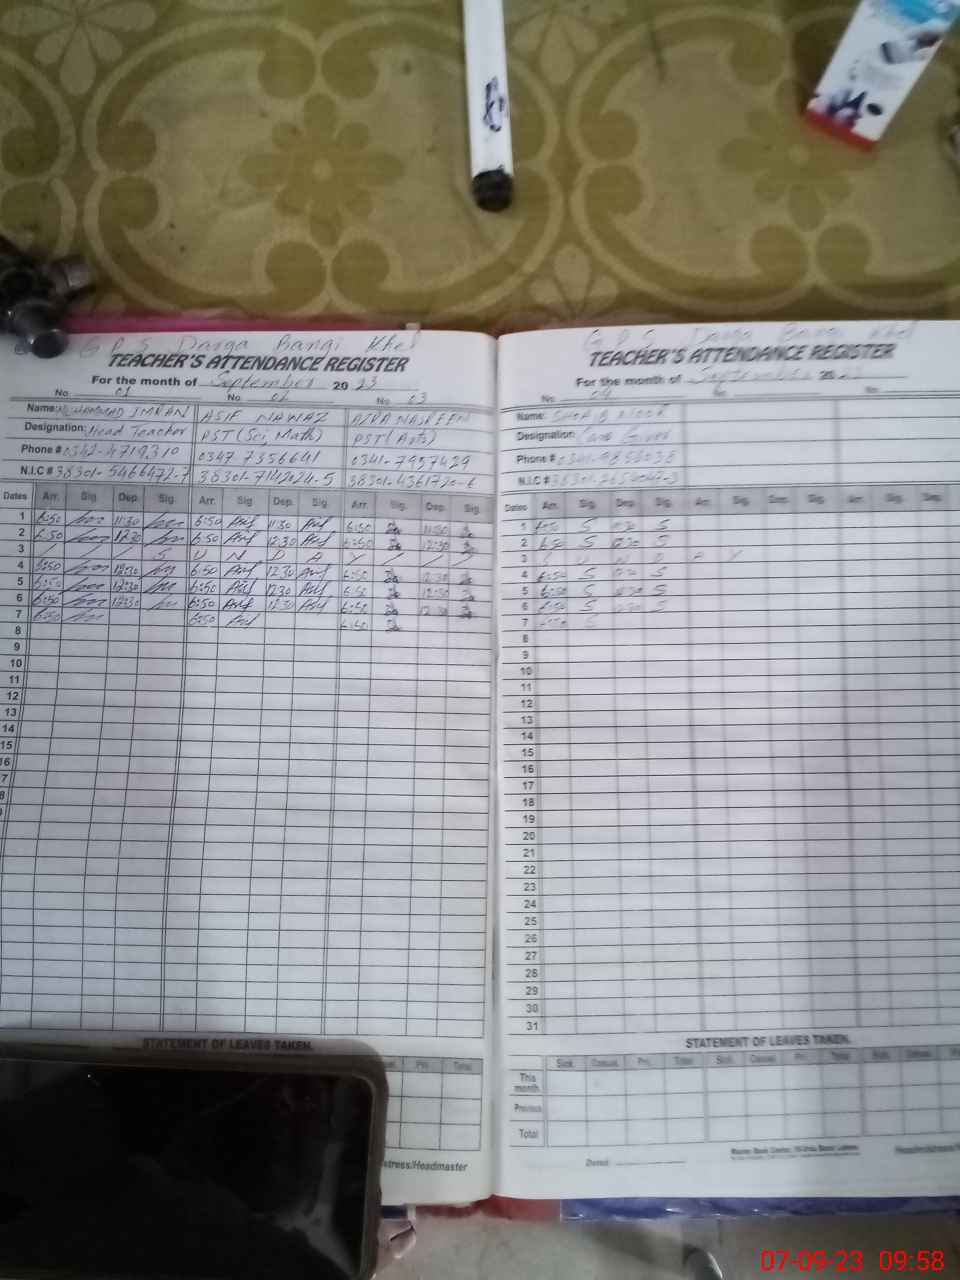 G P S Darga Bangi Khel
TEACHER'S ATTENDANCE REGISTER
For the month of September 20 23
No. 01 No. 02 No. 03
Name: MUHAMMAD IMRAN ASIF NAWAZ
Designation: Head Teacher PST (Sci, Math) PST (Arts)
Phone # 0342-4719310 0347 7356641 0341-7957429
N.I.C # 38301-5466472-7 38301-7142024-5 38301-4361720-6
Dates Arr. Sig. Dep. Sig. Arr. Sig. Dep. Sig. Arr. Sig. Dep. Sig.
1 6:50 11:30 6:50 Asif 11:30 Asif 6:50 11:30
2 6:50 12:30 6:50 Asif 12:30 Asif 6:50 12:30
3 S U N D A Y
4 6:50 12:30 6:50 Asif 12:30 Asif 6:50 12:30
5 6:50 12:30 6:50 Asif 12:30 Asif 6:50 12:30
6 6:50 12:30 6:50 Asif 12:30 Asif 6:50 12:30
7 6:50 6:50 Asif 6:50
8
9
10
11
12
13
14
15
16
7
8
STATEMENT OF LEAVES TAKEN.
Pri. Total
stress/Headmaster
G P S Darga Bangi Khel
TEACHER'S ATTENDANCE REGISTER
For the month of September 20 23
No. 04 No. No.
Name: SHOAIB NOOR
Designation: Care Giver
Phone #
N.I.C #
Dates Arr. Sig. Dep. Sig. Arr. Sig. Dep. Sig. Arr. Sig. Dep.
1 6:50 S 11:30 S
2 6:50 S 12:30 S
3 S U N D A Y
4 6:50 S 12:30 S
5 6:50 S 12:30 S
6 6:50 S 12:30 S
7 6:50 S
8
9
10
11
12
13
14
15
16
17
18
19
20
21
22
23
24
25
26
27
28
29
30
31
STATEMENT OF LEAVES TAKEN.
Sick Casual Pri. Total Sick Casual Pri. Total Sick Casual
This month
Previous
Total
07-09-23 09:58